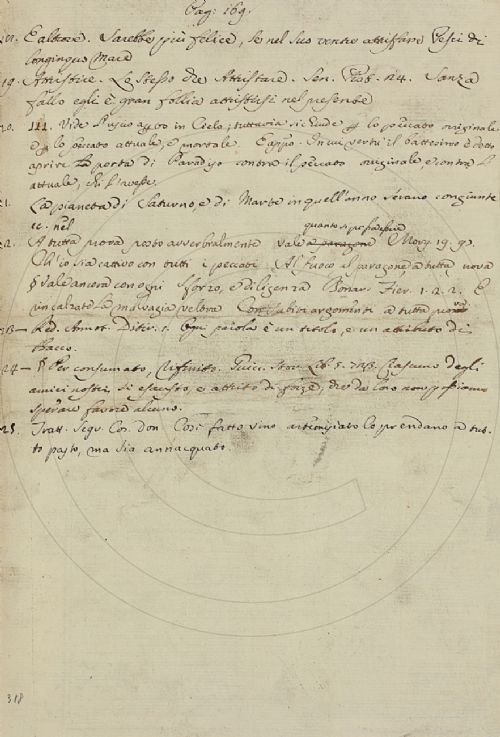 Pag. 169.
E altrove. Sarebbe più felice, se nel suo ventre attriffare Pesci di
longinquo Mare
19. Attristire. Lo stesso che Attristare. Sen. Pist. 124. Sanza
fallo egli è gran follia attristirsi nel presente
20. III. Vide il suo in Cielo; tuttavia si chiude p lo peccato originale
e p lo peccato attuale, e mortale. E appo. In cui vertù il battesimo è detto
aprire la porta di Paradiso contra il peccato originale e contra l'
attuale,
La pianeta di Saturno, e di Marte in quell'anno s'erano congiunte
ec. nel
quanto si può fare
22. A tutta prova posto avverbialmente vale a paragone Morg. 19. 9.
Ch'io sia cattivo con tutti i peccati Al fuoco, al paragone a tutta prova
§ Vale ancora con ogni sforzo, e diligenza Bonar. Fier. 1. 2. 2. E
la malvagia argomenti a tutta prova
23 — Red. Annot. Ditir. 1. Ogni parola è un titolo, e un attributo di
Bacco.
24 — § Per consumato, Rifinito. Guicc. Stor. Lib. 5. Ciascuno degli
amici nostri si esausto, e attrito di forze, che da loro non possiamo
sperare favore alcuno.
25. Tratt. Segr. Cos. don. Così fatto vino lo prendano a tut-
to pasto, ma sia annacquato.
318